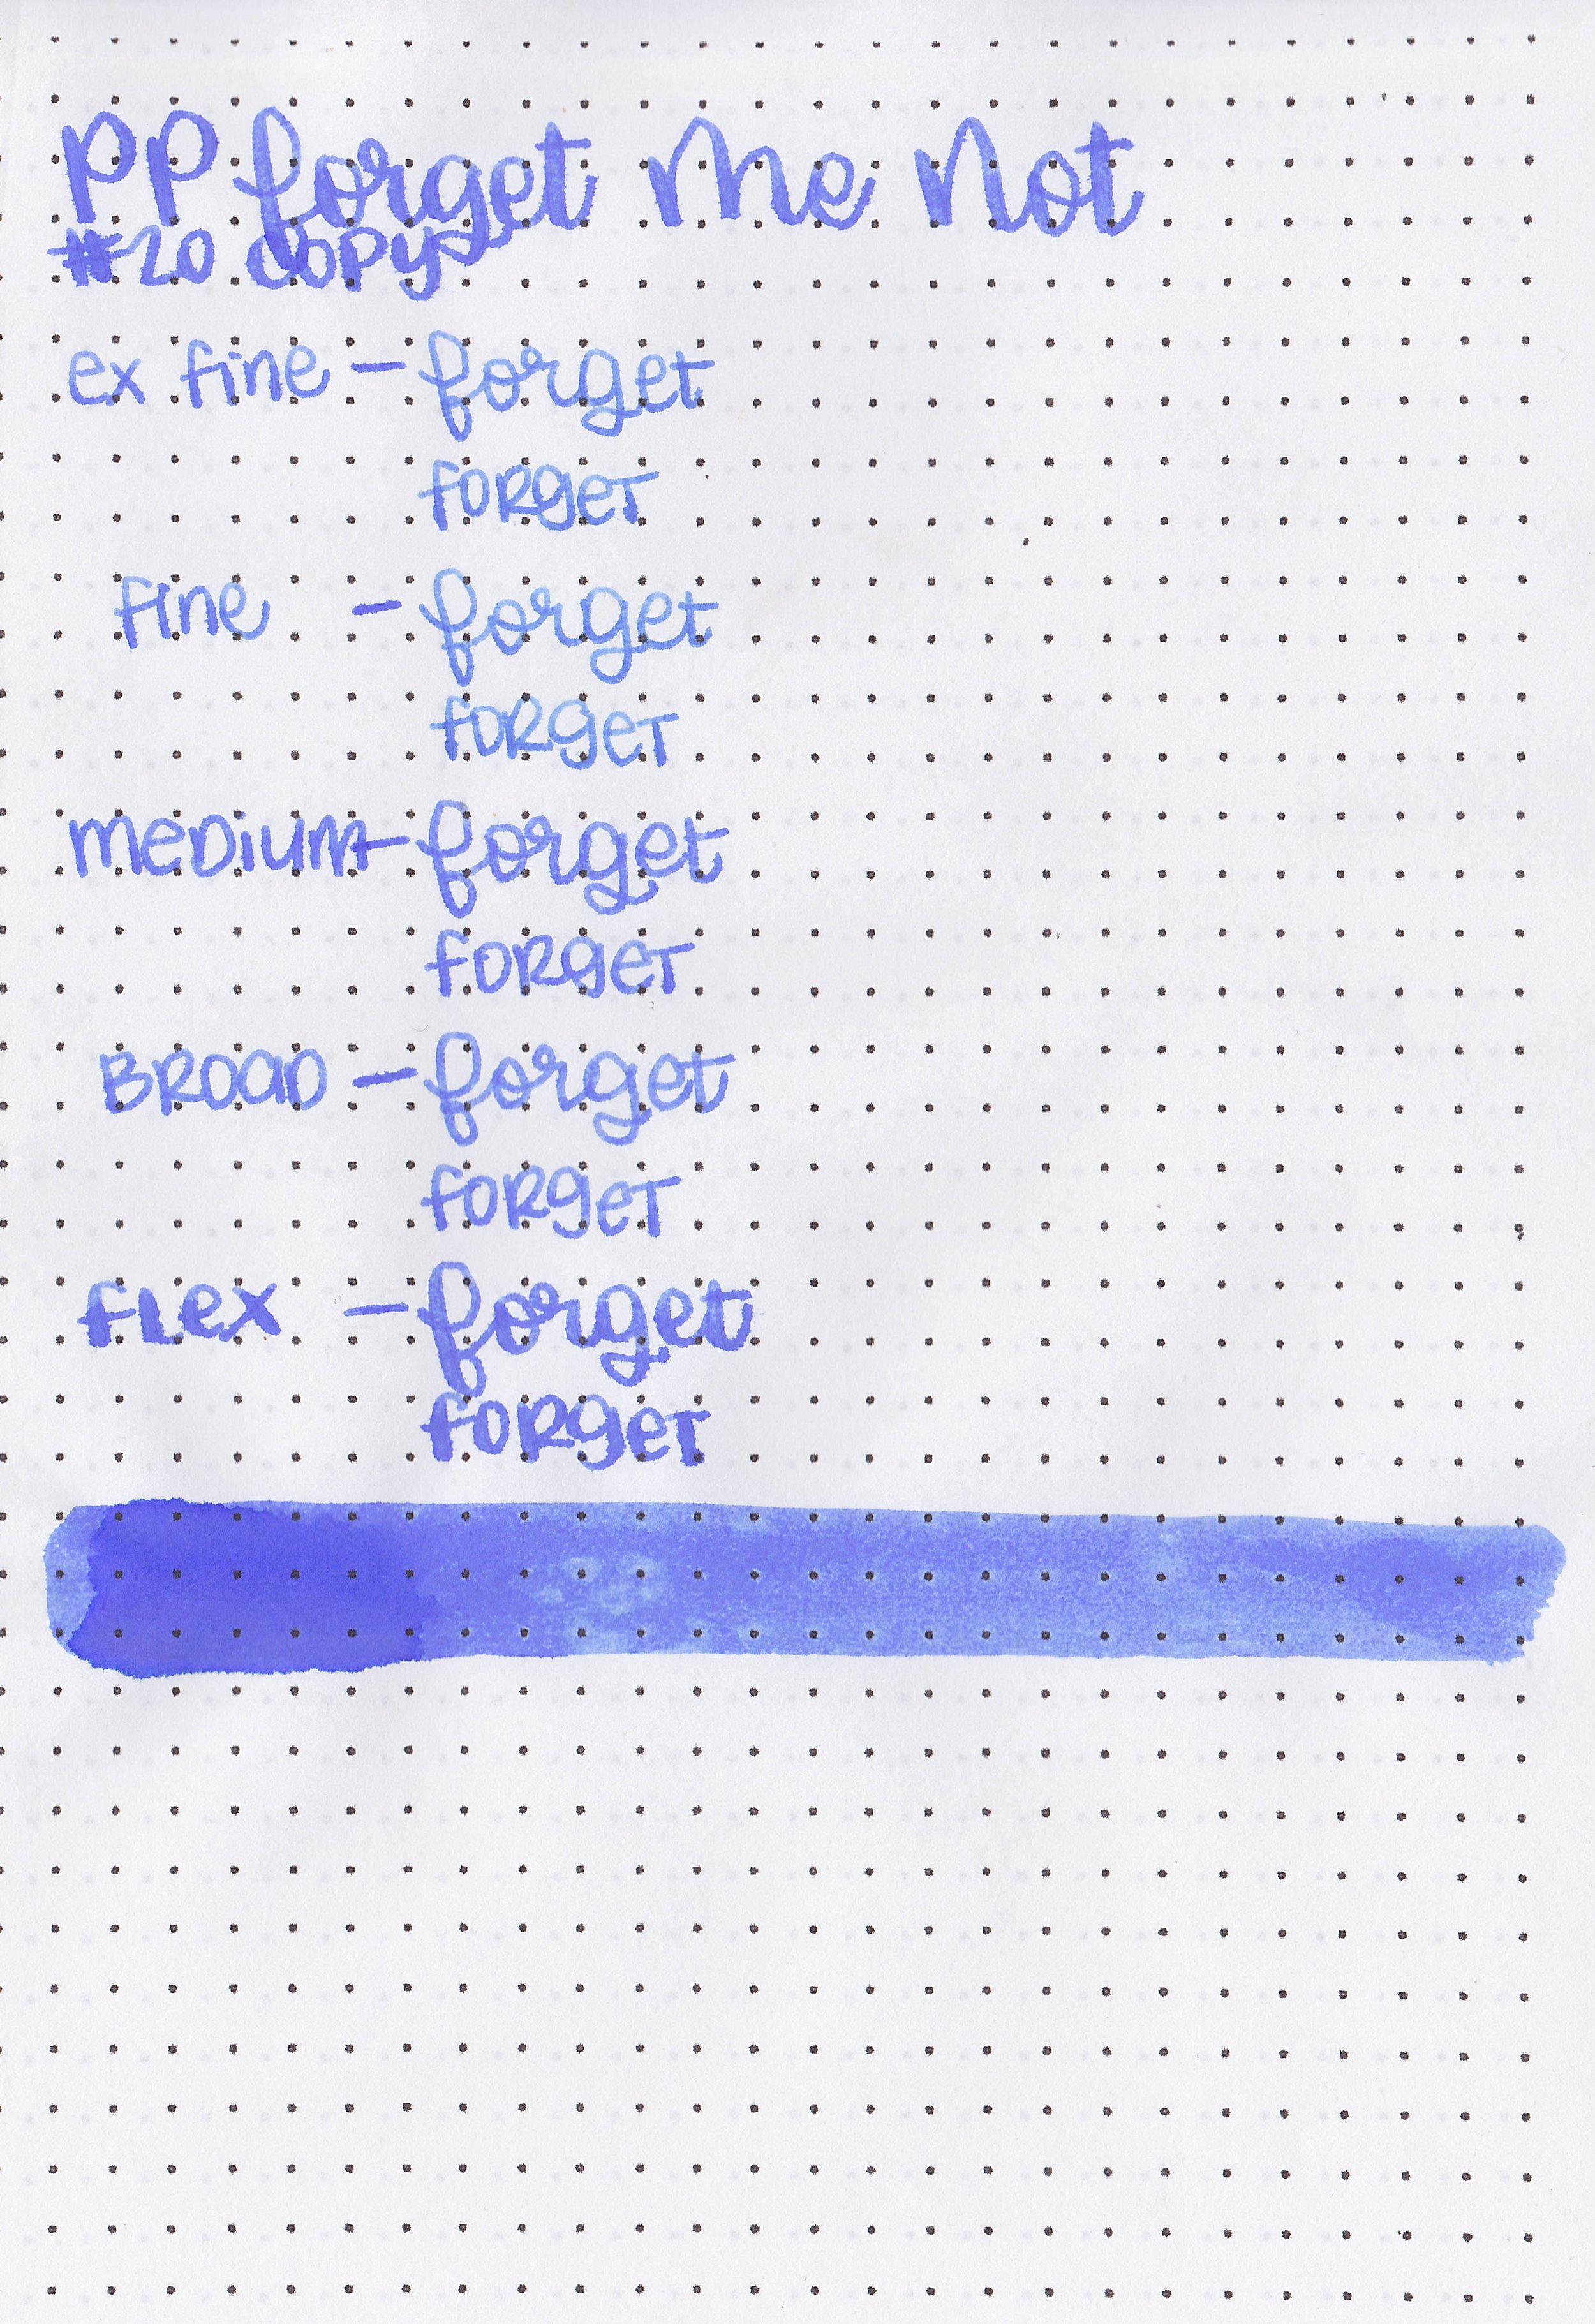 PP forget me not
#20 copy
ex fine - forget
forget
fine - forget
forget
medium - forget
forget
Broad - forget
forget
flex - forget
forget